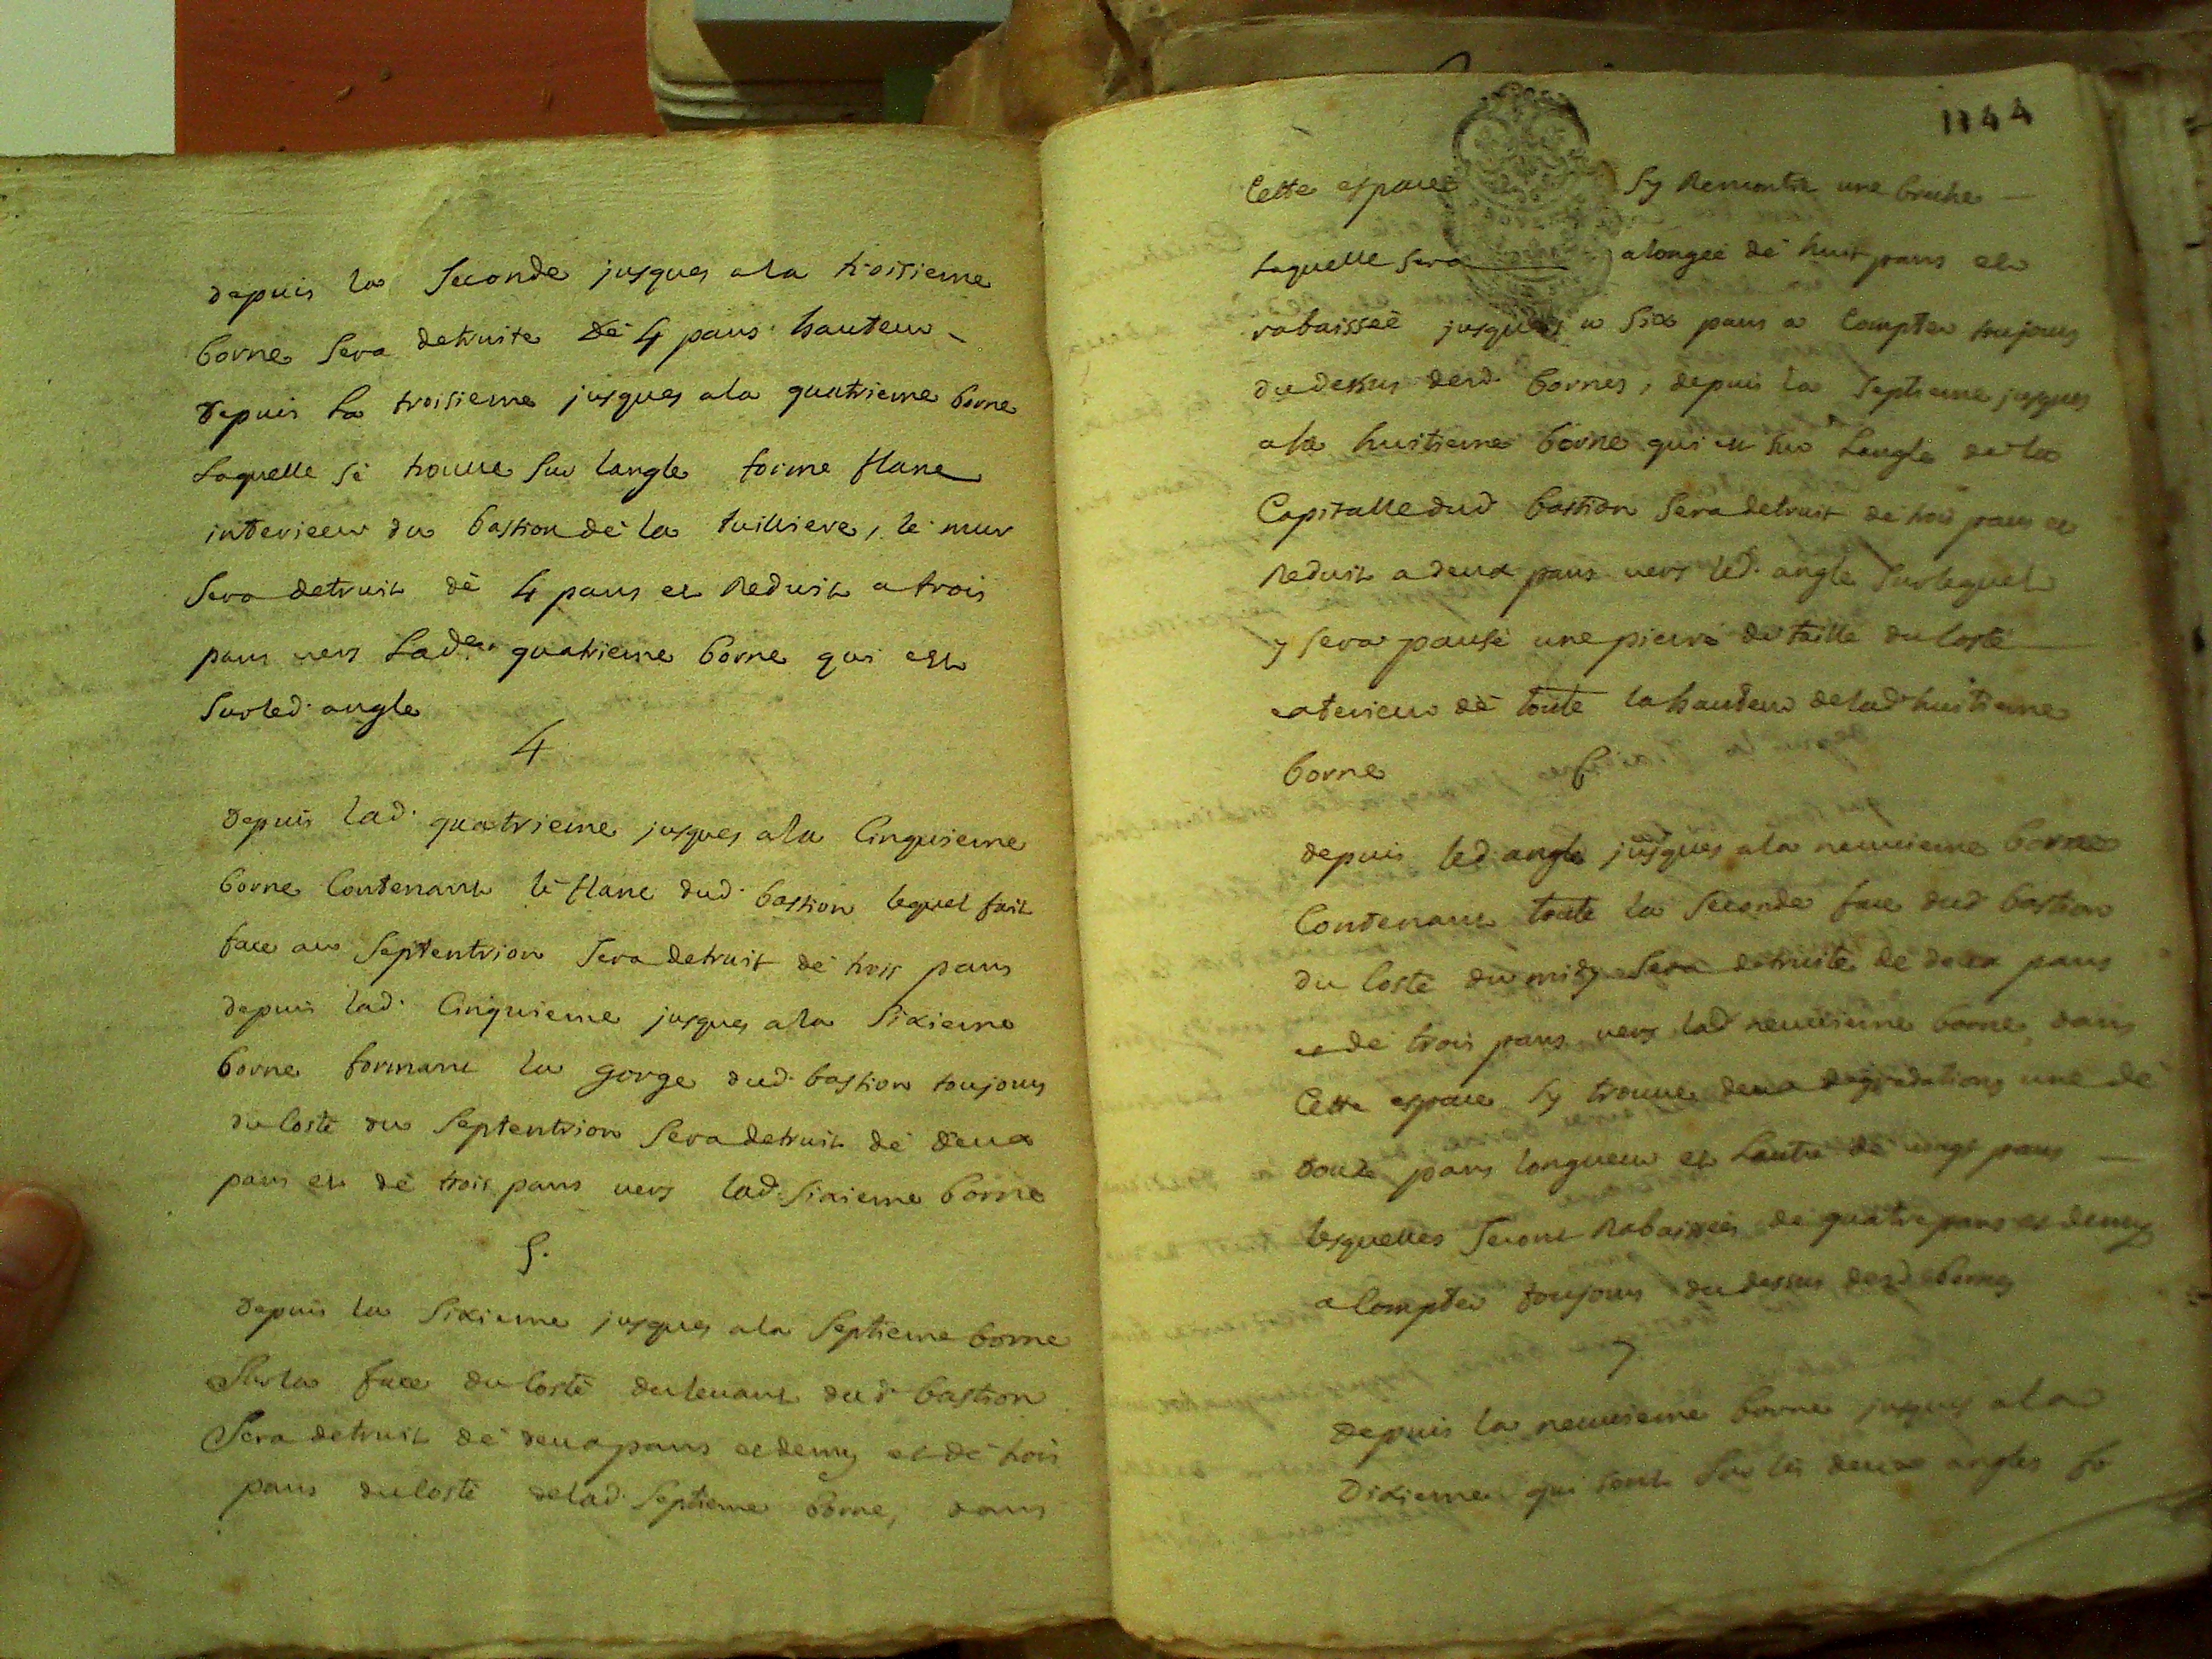 depuis la seconde jusques ala troisieme
borne sera detruite de 4 pans hauteur
depuis la troisieme jusques ala quatrieme borne
Laquelle se trouve sur langle forme flanc
interieur du bastion de la tuilliere, le mur
sera detruit de 4 pans et Reduit a trois
pans vers Lade. quatrieme borne qui est
surled. angle
4
depuis lad. quatrieme jusques ala Cinquieme
borne Contenant le flanc dud. bastion lequel fait
face au septentrion sera detruit de trois pans
depuis lad. Cinquieme jusques ala sixieme
borne formant la gorge dud. bastion toujours
du Costé du septentrion sera detruit de deux
pans et de trois pans vers lad. sixieme borne
5.
depuis la sixieme jusques ala septieme borne
sur la face du Costé du levant dud. bastion
sera detruit de deux pans et demy et de trois
pans du Costé delad. septieme borne, dans
1144
Cette espace sy Rencontre une breche
Laquelle sera alongée de huit pans et
rabaisseé jusques a six pans a Compter toujours
du dessus desd. bornes, depuis la septieme jusques
ala huitieme borne qui est sur Langle de la
Capitalle dud. bastion sera detruit de trois pans et
Reduit a deux pans vers led. angle surlequel
y sera pausé une pierre de taille du Costé
exterieur de toute la hauteur delad. huitieme
borne
6
depuis led. angle jusques ala neuvieme borne
Contenant toute la seconde face dud. bastion
du Costé du midy sera detruite de deux pans
et de trois pans vers lad. neuvieme borne, dans
Cette espace sy trouve deux degradations une de
douze pans longueur et Lautre de vingt pans
lesquelles seront Rabaissées de quatre pans et demy
a Compter toujours du dessus desd. bornes
7
depuis la neuvieme borne jusques ala
Dixieme qui sont sur les deux angles fo